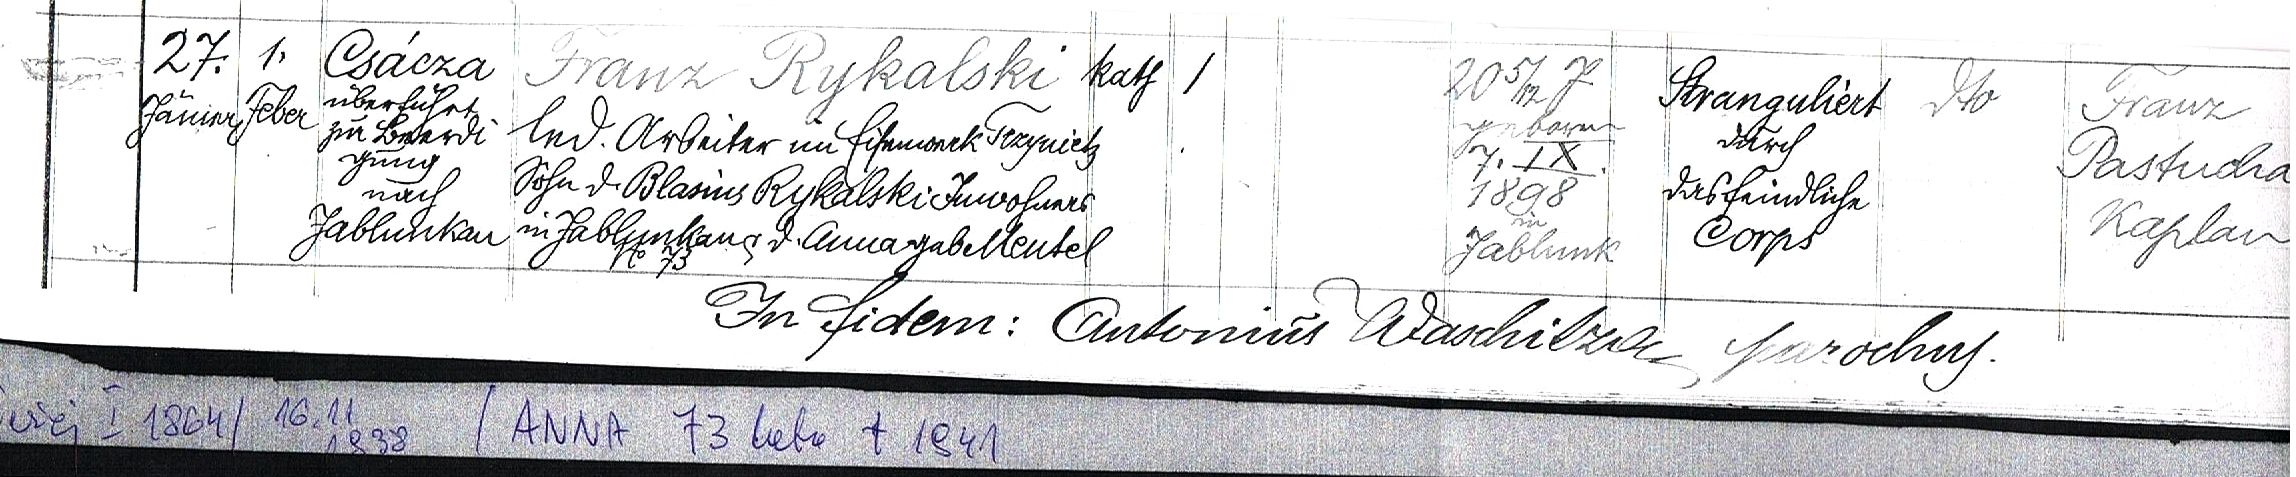 27. Jänner
1. Feber
Csácza
überführt
zu Beerdi
gung
nach
Jablunkau
Franz Rykalski
led. Arbeiter im Eisenwerk Trzynietz
Sohn d. Blasius Rykalski Inwohners
in Jablunkau d. Anna geb. Mentel
No 73
kath
/
20 5/12 J
geboren
7. IX.
1898
in
Jablunk
Stranguliert
durch
das feindliche
Corps
dto
Franz
Pastucha
Kaplan
In fidem: Antonius Waschitza parochus.
I 1864 / 16.11
1938
/ ANNA 73 lata † 1941